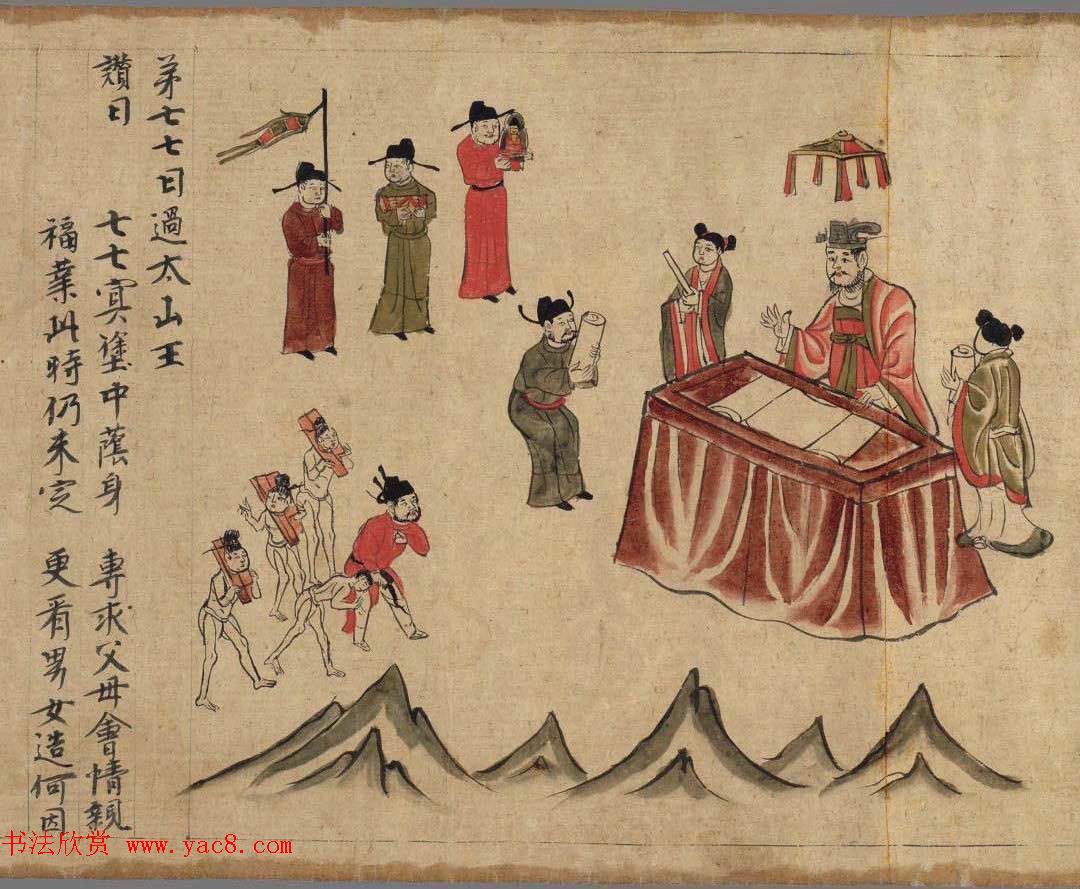 第七七日過太山王
讚曰
七七冥塗中蔭身 專求父母會情親
福業此時仍未定 更看男女造何因
书法欣赏 www.yac8.com